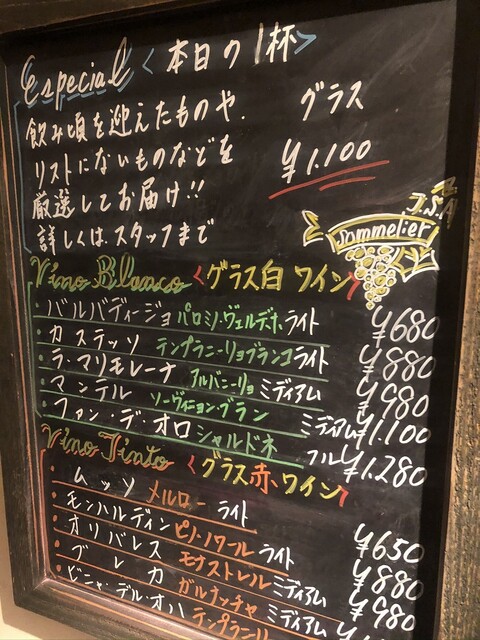 Especial <本日の1杯>
飲み頃を迎えたものや、
グラス
リストにないものなどを
¥1.100
厳選してお届け!!
詳しくは、スタッフまで
J.S.A
Sommelier
Vino Blanco <グラス白ワイン>
・バルバディージョ パロミノ・ヴェルデホ ライト ¥680
・カステッソ テンプラニーリョブランコ ライト ¥880
・ラ・マリモレーナ アルバニーリョ ミディアム ¥980
・マンテル ソーヴィニョン・ブラン ミディアム ¥1.100
・ファン・デ・オロ シャルドネ フル ¥1.280
Vino Tinto <グラス赤ワイン>
・ムッソ メルロー ライト ¥650
・モンハルディン ピノ・ノワール ライト ¥880
・オリバレス モナストレル ミディアム ¥980
・ブレカ ガルナッチャ ミディアム
・ビニャ・デル・オハ テンプラニー